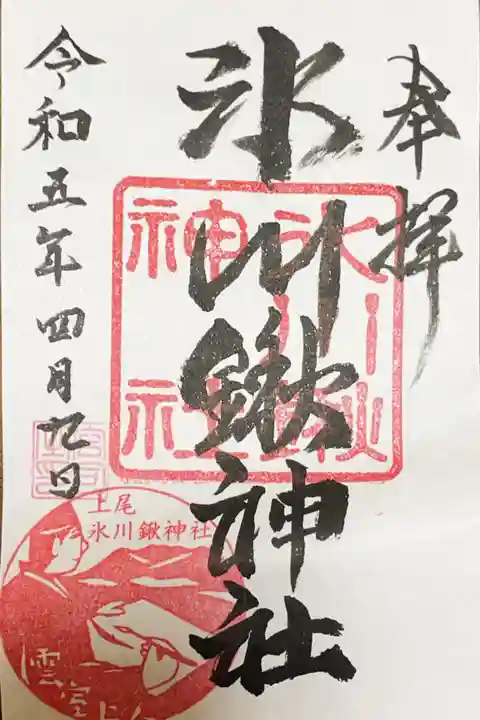 奉拝
氷川鍬神社
令和五年四月九日
上尾
氷川鍬神社
雲室上人